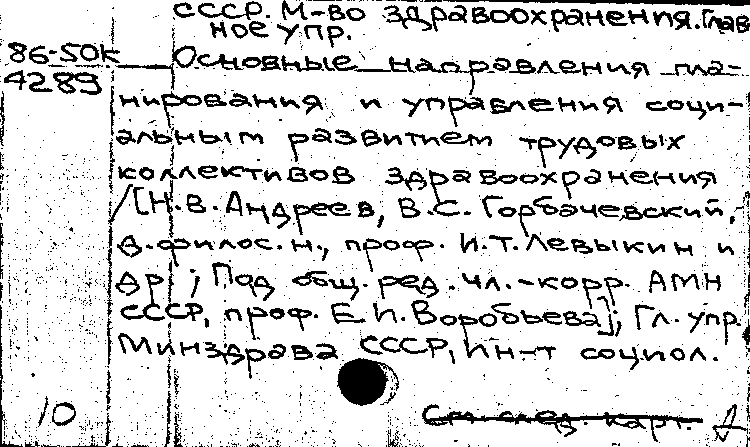 СССР. М-во здравоохранения. Глав
ное упр.
86-50к
4289
Основные направления пла-
нирования и управления соци-
альным развитием трудовых
коллективов здравоохранения
/[Н.В. Андреев, В.С. Горбачевский,
д. филос. н., проф. И.Т. Левыкин и
др.; Под общ. ред. чл.-корр. АМН
СССР, проф. Е.И. Воробьева]; Гл. упр.
Минздрава СССР, Ин-т социол.
10
См. след. карт.